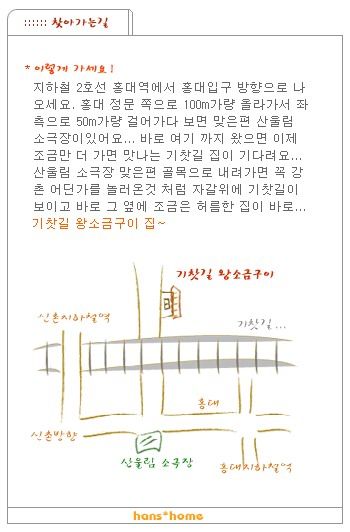 :::::: 찾아가는길
* 이렇게 가세요!
지하철 2호선 홍대역에서 홍대입구 방향으로 나
오세요. 홍대 정문 쪽으로 100m가량 올라가서 좌
측으로 50m가량 걸어가다 보면 맞은편 산울림
소극장이있어요... 바로 여기 까지 왔으면 이제
조금만 더 가면 맛나는 기찻길 집이 기다려요...
산울림 소극장 맞은편 골목으로 내려가면 꼭 강
촌 어딘가를 놀러온것 처럼 자갈위에 기찻길이
보이고 바로 그 옆에 조금은 허름한 집이 바로...
기찻길 왕소금구이 집~
기찻길 왕소금구이
신촌지하철역
기찻길...
홍대
신촌방향
산울림 소극장
홍대지하철역
hans*home